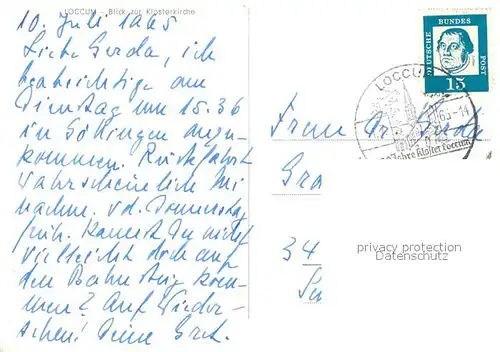 LOCCUM - Blick zur Klosterkirche
10. Juli 1965
Liebe Gerda, ich
beabsichtige am
Dienstag um 15.36
in Göttingen anzu-
kommen. Rückfahrt
wahrscheinlich Mi
nachm. od. Donnerstag
früh. Kannst Du nicht
vielleicht doch auf
den Bahnsteig kom-
men? Auf Wieder-
sehen! Deine
DEUTSCHE BUNDES POST
15
LOCCUM
Jahre Kloster Loccum
Frau Gerda
34
privacy protection
Datenschutz